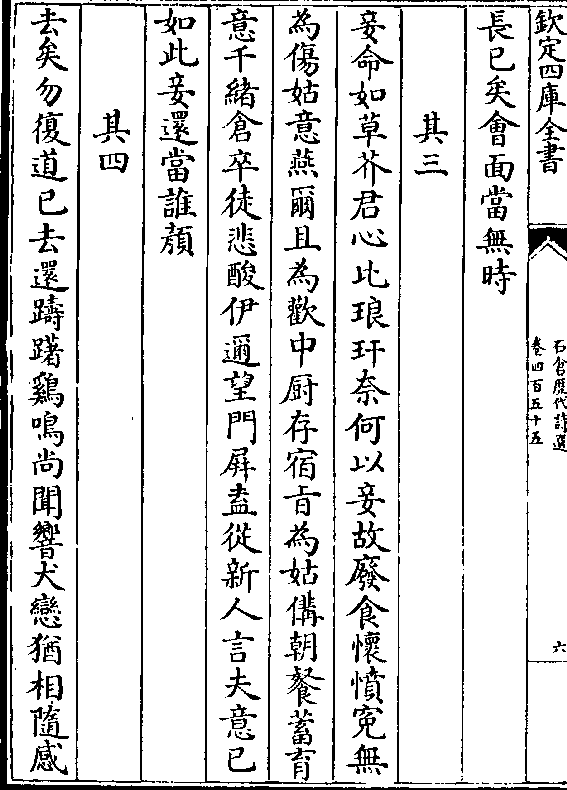 欽定四庫全書
石倉歷代詩選
卷四百五十五
六
長已矣會面當無時
其三
妾命如草芥君心比琅玕奈何以妾故廢食懷憤寃無
為傷姑意燕爾且為歡中厨存宿旨為姑備朝餐蓄育
意千緒倉卒徒悲酸伊邇望門屏盍從新人言夫意已
如此妾還當誰顔
其四
去矣勿復道已去還躊躇鷄鳴尚聞響犬戀猶相隨感